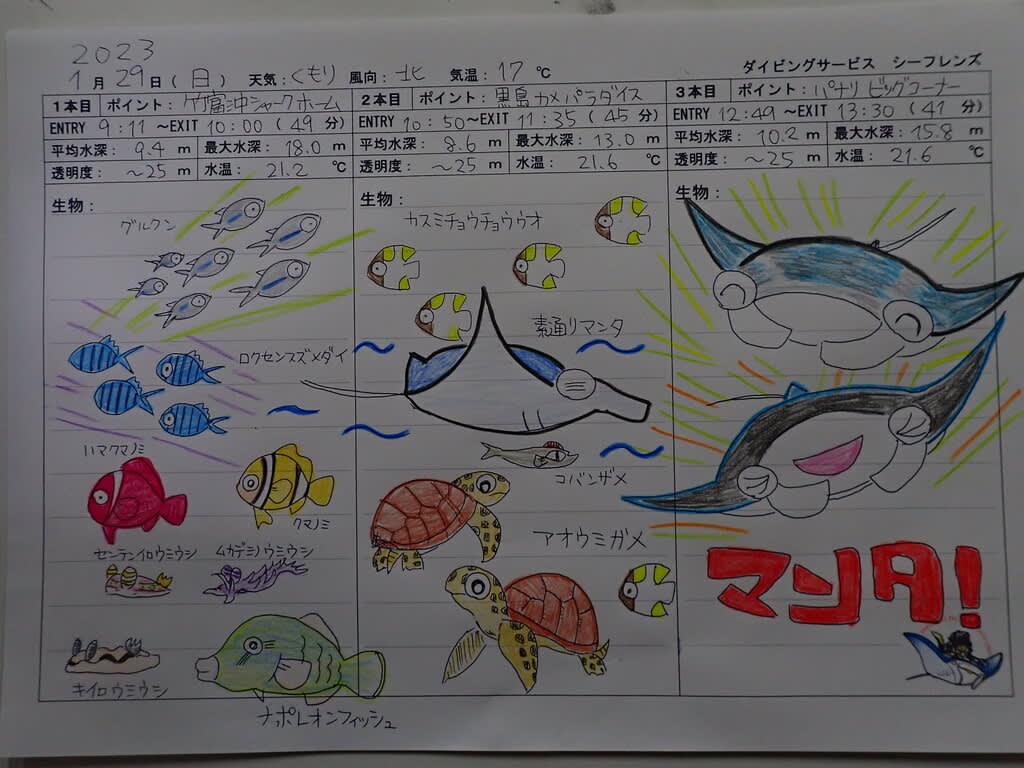 2023
1月29日(日) 天気:くもり 風向:北 気温:17℃ ダイビングサービス シーフレンズ
1本目 ポイント:竹富沖シャークホーム
ENTRY 9:11 ~EXIT 10:00 (49 分)
平均水深: 9.4 m 最大水深: 18.0 m
透明度: ~25 m 水温: 21.2 ℃
生物:
グルクン
ロクセンスズメダイ
ハマクマノミ
クマノミ
センテンイロウミウシ
ムカデミノウミウシ
キイロウミウシ
ナポレオンフィッシュ
2本目 ポイント:黒島カメパラダイス
ENTRY 10:50~EXIT 11:35 (45 分)
平均水深: 8.6 m 最大水深: 13.0 m
透明度: ~25 m 水温: 21.6 ℃
生物:
カスミチョウチョウウオ
素通りマンタ
コバンザメ
アオウミガメ
3本目 ポイント:パナリ ビッグコーナー
ENTRY 12:49~EXIT 13:30 (41 分)
平均水深: 10.2 m 最大水深: 15.8 m
透明度: ~25 m 水温: 21.6 ℃
生物:
マンタ!